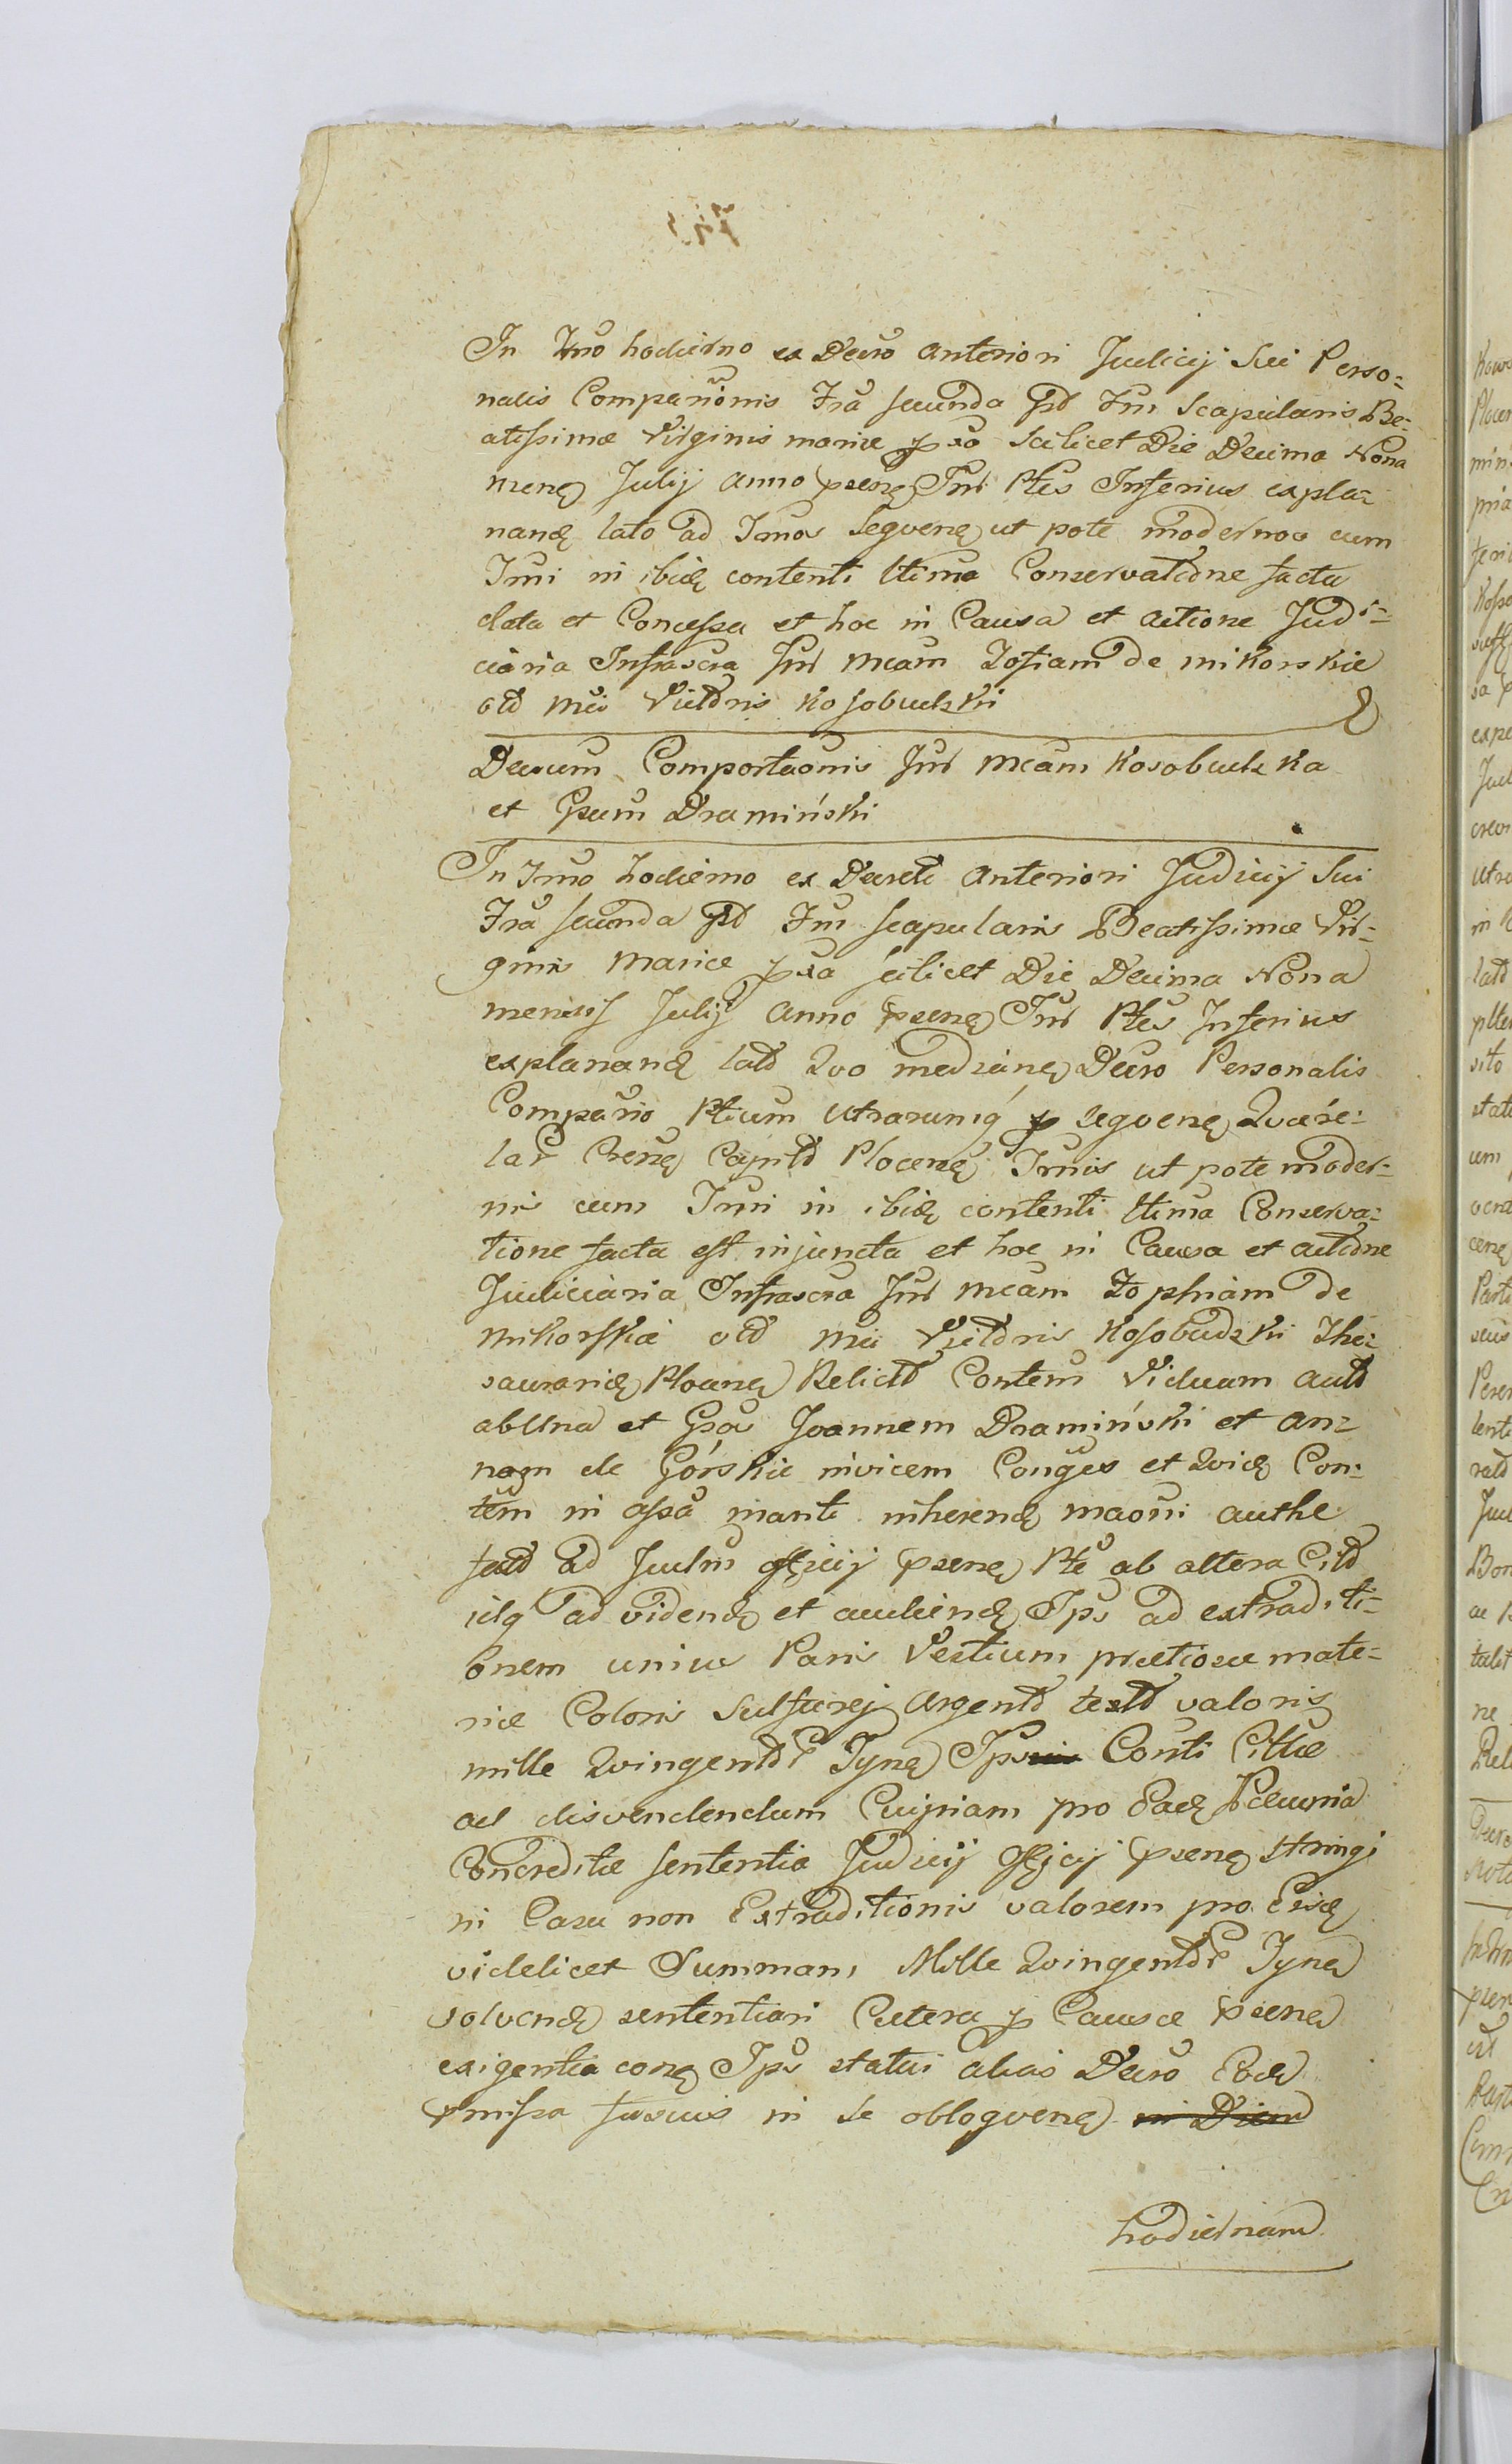 In Tmo hodierno ex Decro anteriori Judicij Sui Perso=
nalis Comparionis Fra secunda pst Fm Scapularis Be=
atissimæ Virginis mariæ pxa Scilicet Die Decima Nona
mens Julij anno psene Int Ptes Inferius expla=
nand lato ad Tmos Seqvene ut pote modernos cum
Tmi in ibid contenti ltima Conservatione facta
data et Concessa et hoc in Causa et actione Judi=
ciaria Infrascra Int Mcam Zofiam de mikorskie
old Mci Victoris Kosobudzki
Decrum Comportaonis Int Mcam Kosobudzka
et Gsum Dramiński
In Tmo hodierno ex Decreti anteriori Judicij Sui
Fra secunda pst Fm Scapularis Beatissimæ Vir=
ginis Mariæ pxa scilicet Die Decima Nona
mensis Julij anno psene Int Ptes Inferius
explanand lato Qvo mediane Decro Personalis
Compario Ptium Utrarumq p seqvene Qvære=
lar Crene Capitl Plocene Tmis ut pote moder=
nis cum Tmi in ibid contenti ltima Conserva=
tione facta est injuncta et hoc in Causa et actione
Judiciaria Infrascra Int Mcam Zophiam de
Mikorskie old Mci Victoris Kosobudzki The=
saurarid Plocene Relictt Contem Viduam act
ab Una et Gsos Joannem Dramiński et an=
nam de Górskie invicem Conges et Qvid Con=
tem in assa manti inherend maoni authe
ad Judm Officij psene Pte ab altera Citt
idq ad vidend et audiend Ips ad extraditi=
onem unius Paris Vestium prætiosæ mate=
riæ Coloris Sulfurej Argentt textt valoris
mille Qvingentor Tyne Ips Conti Cittæ
ad disvendendum Cuipiam pro Ead Pecunia
Concreditæ sententia Judicij Officij psene stringi
in Casu non Extraditionis valorem pro Eisd
videlicet Summam Mille Qvingentor Tyne
solvend sententiari Cætera p Causæ psene
exigentia cone Ips statui alias Decro Eod
pmissa fusius in se obloqvene in Diem
hodiernam